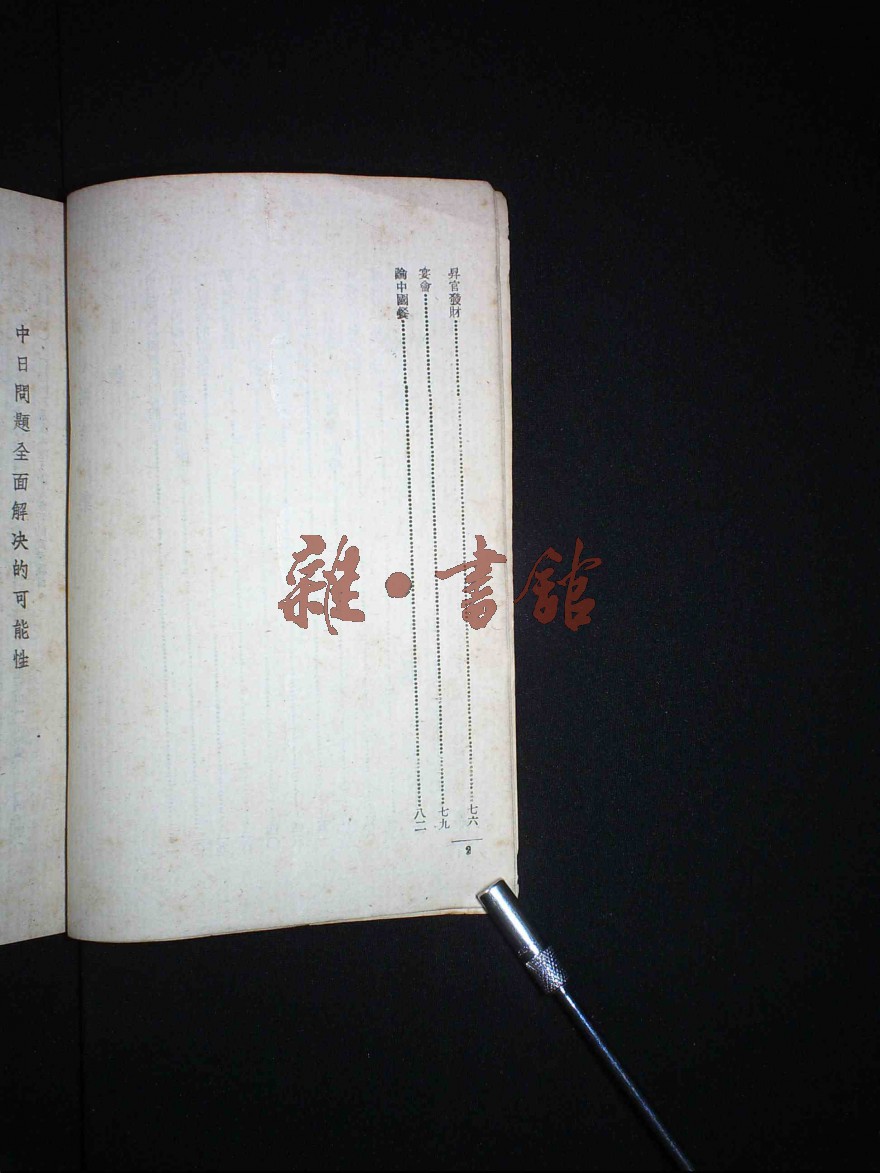 昇官發財⋯⋯⋯⋯七六
宴會⋯⋯⋯⋯七九
論中國餐⋯⋯⋯⋯八二
2
中日問題全面解決的可能性
雜·書館